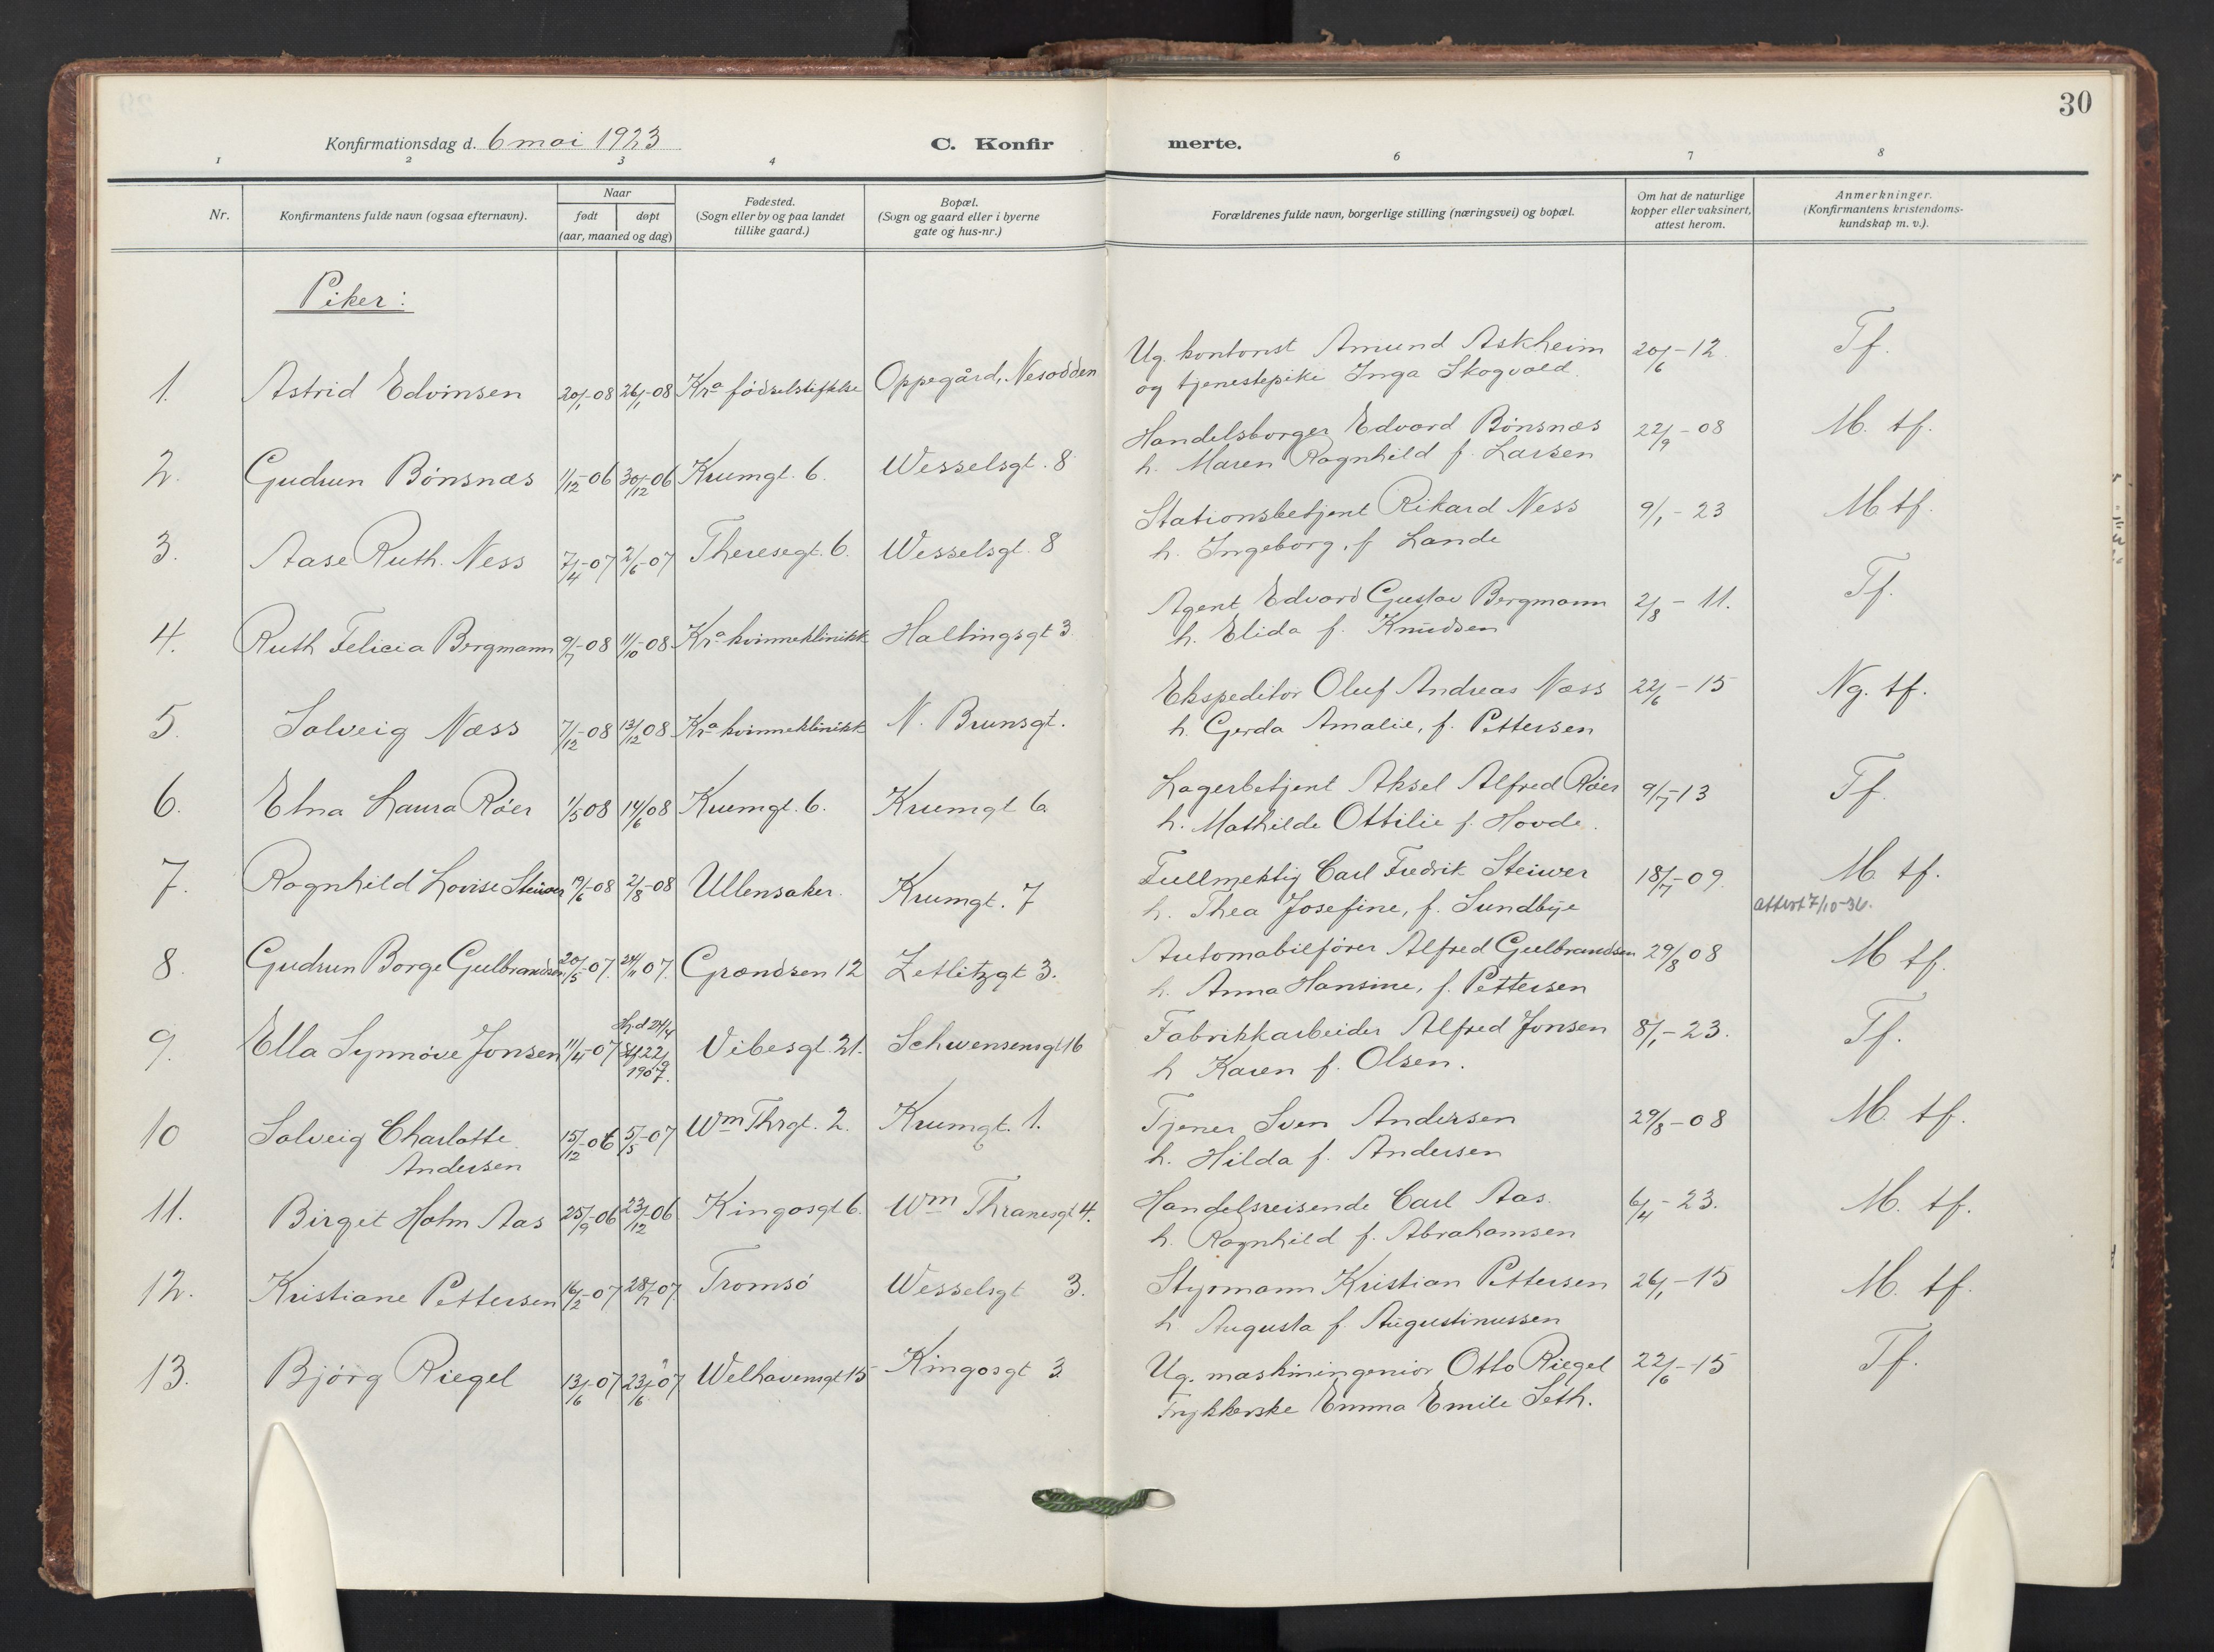 30
Konfirmationsdag d. 6 mai 1923
C. Konfirmerte.
1 2 3 4 6 7 8
Nr.
Konfirmantens fulde navn (ogsaa efternavn).
Naar
født døpt
(aar, maaned og dag)
Fødested.
(Sogn eller by og paa landet
tillike gaard.)
Bopæl.
(Sogn og gaard eller i byerne
gate og hus-nr.)
Forældrenes fulde navn, borgerlige stilling (næringsvei) og bopæl.
Om hat de naturlige
kopper eller vaksinert,
attest herom.
Anmerkninger.
(Konfirmantens kristendoms-
kundskap m. v.).
Piker:
1. Astrid Edvinsen 20/1-08 26/1-08 Kra fødselsstiftelse Oppegård, Nesodden Ug. kontorist Amund Askheim 20/6-12 Tf.
og tjenestepike Inga Skogvold
2. Gudrun Bönsnæs 1/12-06 30/12-06 Krumgt. 6. Wesselsgt. 8 Handelsborger Edvard Bönsnæs 22/9-08 M. tf.
h. Maren Ragnhild f. Larsen
3. Aase Ruth Ness 7/4-07 2/6-07 Theresegt. 6. Wesselsgt. 8 Stationsbetjent Rikard Ness 9/1-23 M tf.
h. Ingeborg, f. Lande
4. Ruth Felicia Bergmann 9/7-08 11/10-08 Kra kvinneklinikk Hallingsgt 3 Agent Edvard Gustav Bergmann 2/8-11. Tf.
h. Elida f. Knudsen
5. Solveig Næss 7/12-08 13/12-08 Kra kvinneklinikk N. Brunsgt. Ekspeditør Oluf Andreas Næss 22/6-15 Ng. tf.
h. Gerda Amalie, f. Pettersen
6. Elna Laura Röer 1/5-08 14/6-08 Krumgt. 6. Krumgt 6a Lagerbetjent Aksel Alfred Röer 9/7-13 Tf.
h. Mathilde Ottilie f. Hovde.
7. Ragnhild Lovise Steiwer 19/6-08 2/8-08 Ullensaker. Krumgt. 7 Fullmektig Carl Fredrik Steiwer 18/7-09. M. tf.
h. Thea Josefine, f. Sundbye attest 7/10-36.
8. Gudrun Borge Gulbrandsen 20/5-07. 24/11-07. Grændsen 12 Zetlitzgt 3. Automobilfører Alfred Gulbrandsen 29/8 08 M tf.
h. Anna Hansine, f. Pettersen
9. Ella Synnöve Jonsen 11/4-07 Hj.d 24/4 22/9 1907. Vibesgt. 21. Schwensensgt 16 Fabrikkarbeider Alfred Jonsen 8/1-23. Tf.
h Karen f. Olsen.
10 Solveig Charlotte Andersen 15/12-06 5/5-07 Wm Thrgt. 2. Krumgt. 1. Tjener Sven Andersen 29/8-08 M. tf.
h. Hilda f. Andersen
11. Birget Holm Aas 25/9-06 23/12-06 Kingosgt 6. Wm Thranesgt 4. Handelsreisende Carl Aas. 6/4-23. M. tf.
h. Ragnhild f. Abrahamsen
12. Kristiane Pettersen 16/2-07 28/7-07. Tromsö Wesselsgt 3. Styrmann Kristian Pettersen 26/1-15 M. tf.
h Augusta f. Augustinussen
13. Bjørg Riegel 13/6-07 23/6-07 Welhavensgt 15 Kingosgt 3 Ug. maskiningeniør Otto Riegel 22/6-15 Tf.
Trykkerske Emma Emile Seth.